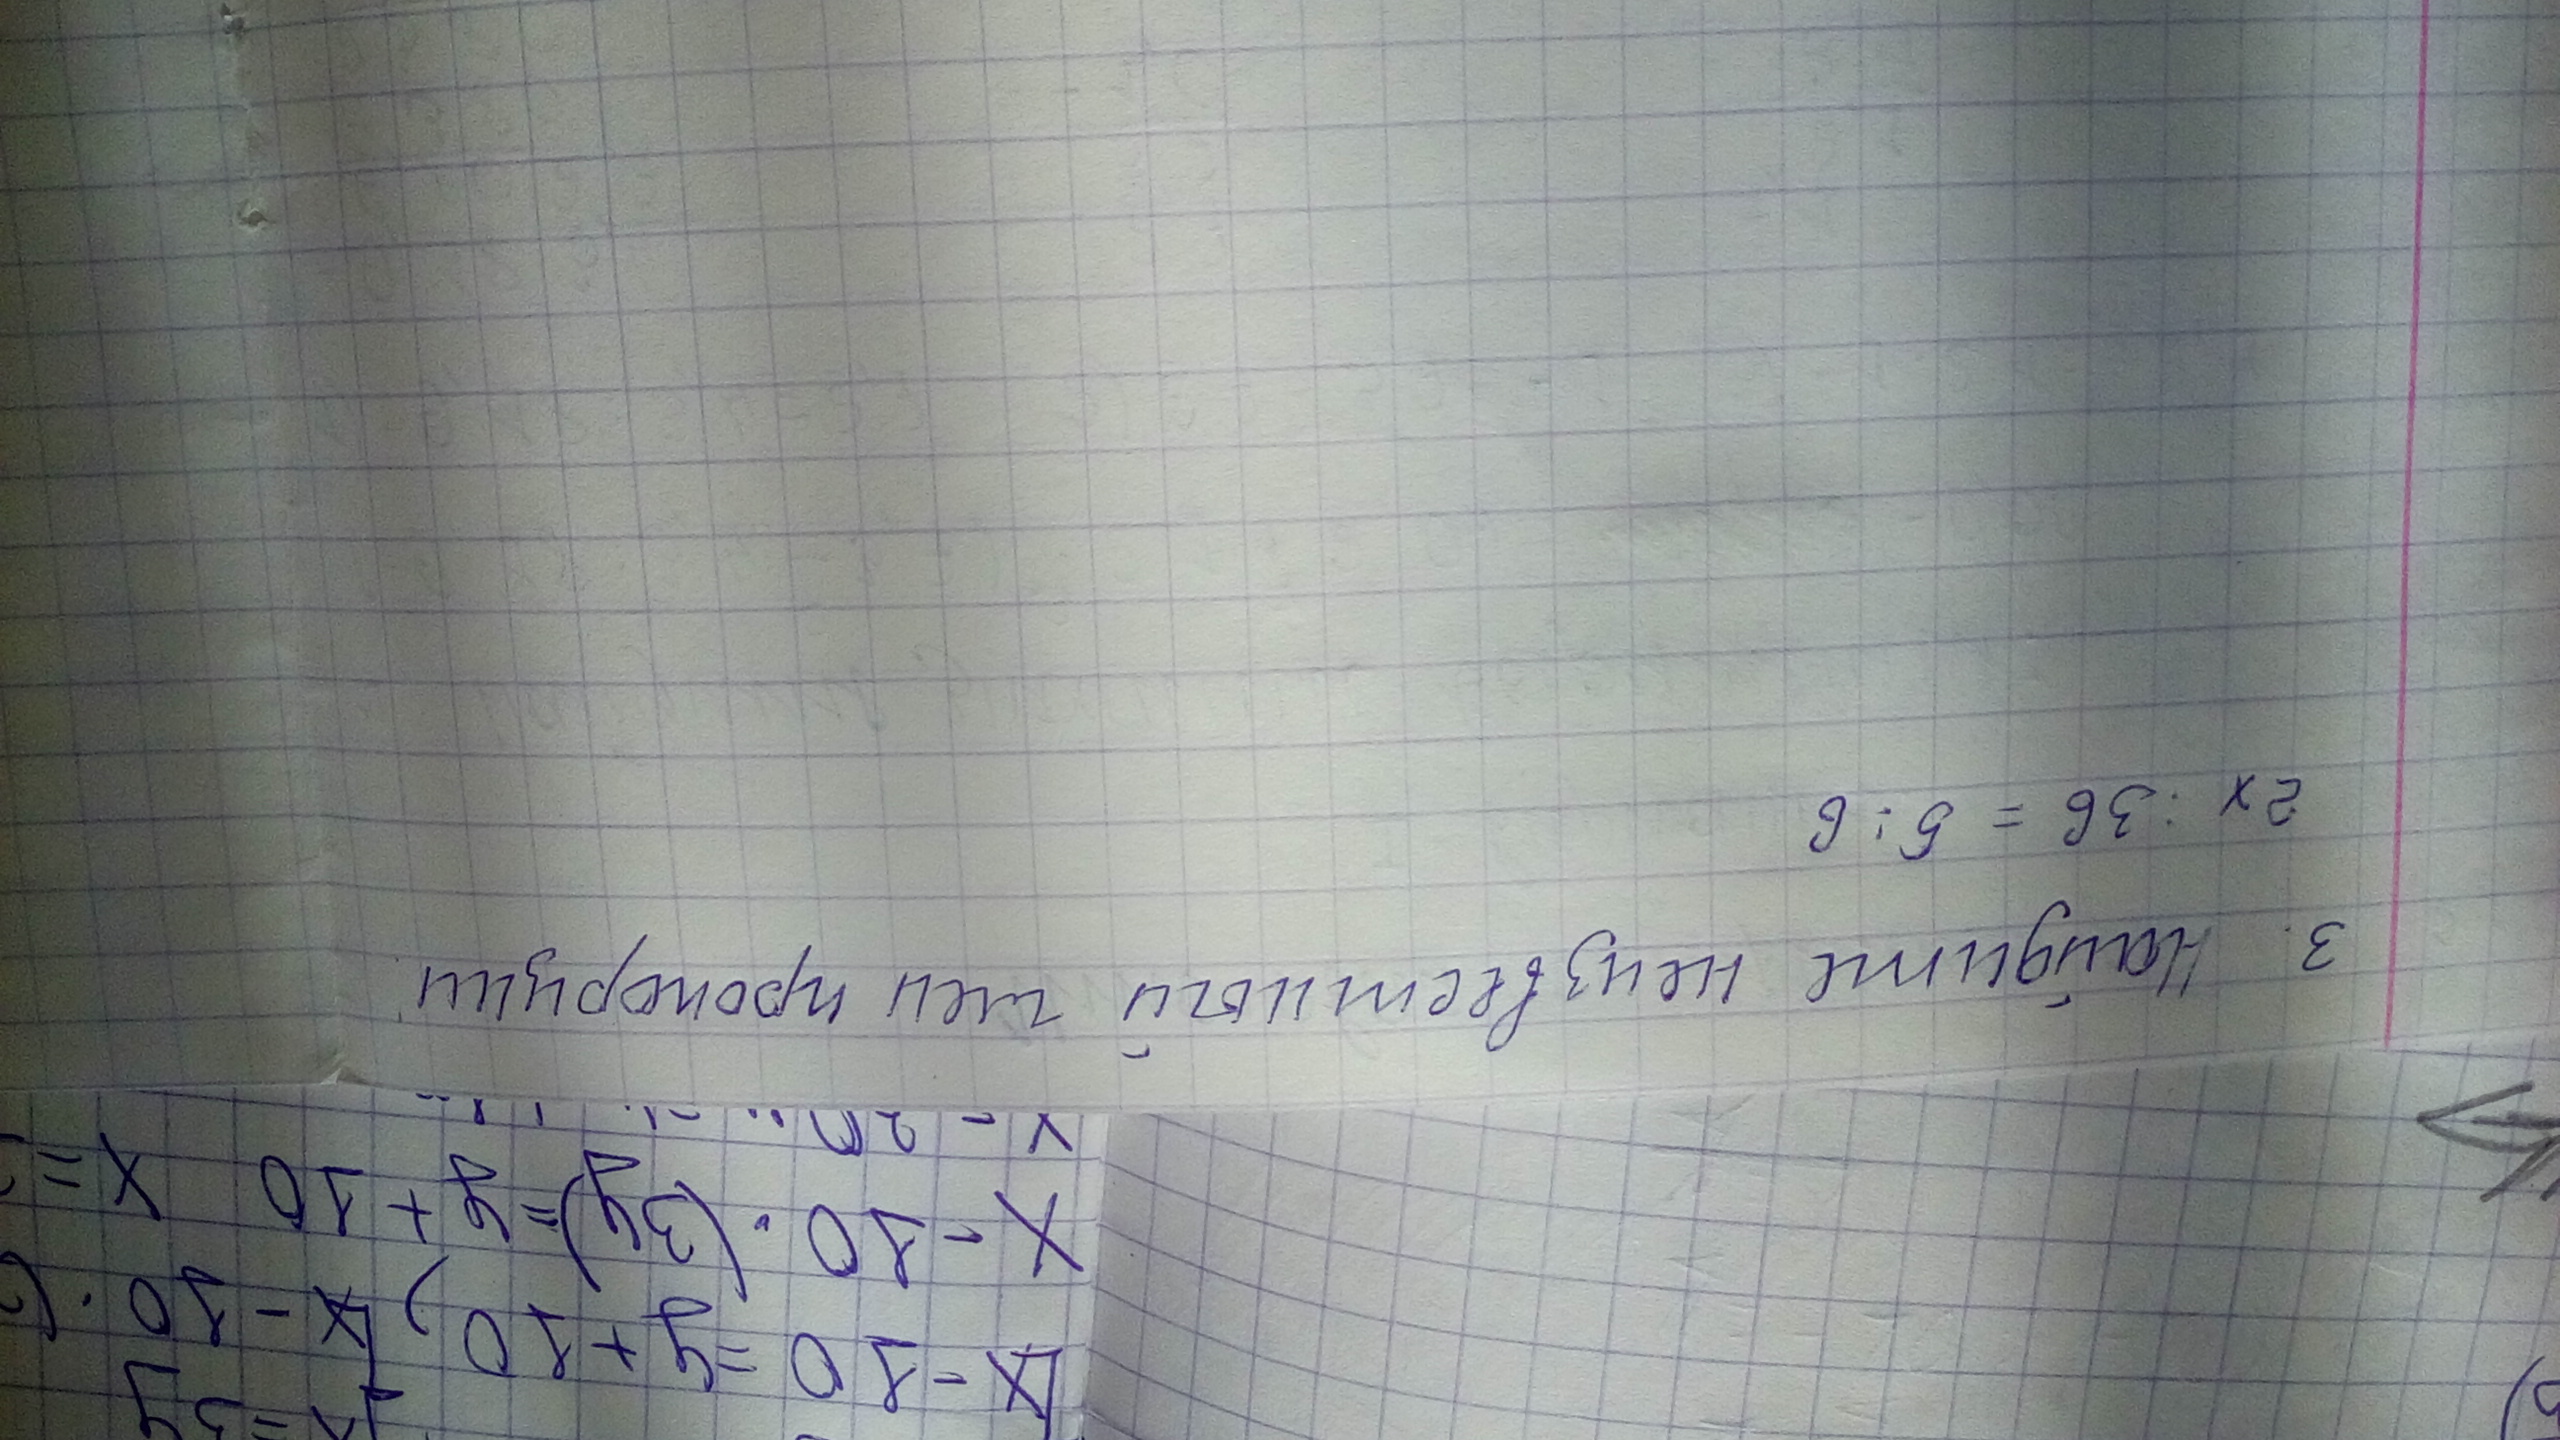 x = 3y
x - 10 = y + 10, x - 10 · (
x - 10 · (3y) = y + 10 x =
3. Найдите неизвестный член пропорции.
2x : 36 = 5 : 6